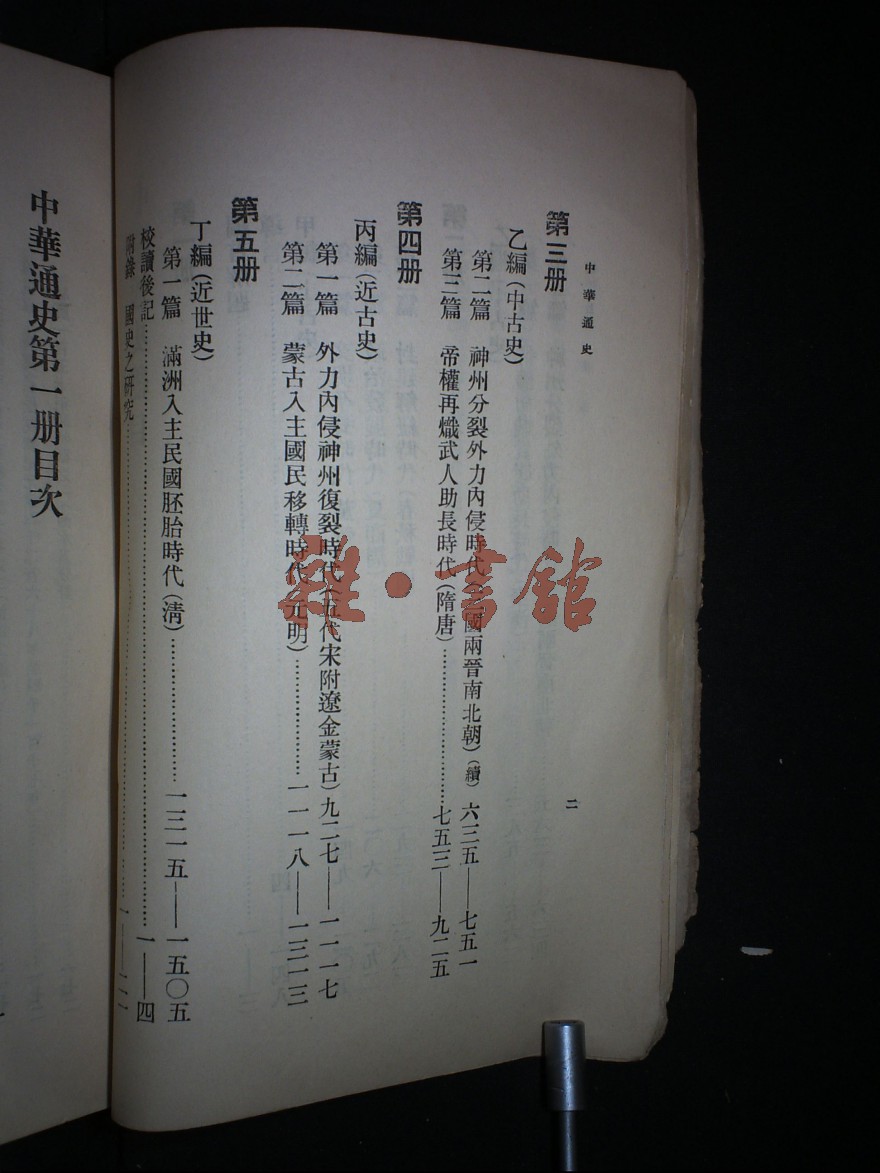 中華通史
二
第三册
乙編(中古史)
第二篇 神州分裂外力內侵時代( 國兩晉南北朝)(續) 六三五——七五一
第三篇 帝權再熾武人助長時代(隋唐)……七五三——九二五
第四册
丙編(近古史)
第一篇 外力內侵神州復裂時代(五代宋附遼金蒙古)九二七——一一一七
第二篇 蒙古入主國民移轉時代(元明)……一一一八——一三一三
第五册
丁編(近世史)
第一篇 滿洲入主民國胚胎時代(淸)……一三一五——一五〇五
校讀後記……一——四
附錄 國史之研究……
中華通史第一册目次
雜·書館